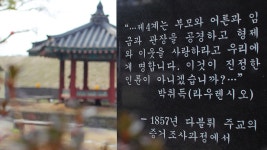 "…제4계는 부모와 어른과 임
금과 관장을 공경하고 형제
와 이웃을 사랑하라고 우리에
게 명합니다. 이것이 진정한
인륜이 아니겠습니까?…"
박취득(라우렌시오)
- 1857년 다블뤼 주교의
증거조사과정에서